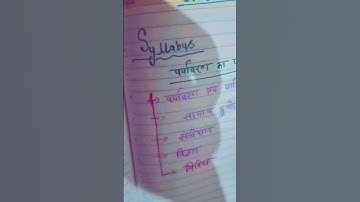 Syllabus
पर्यावरण का
पर्यावरण एवं
सामाज
संवेधान
विज्ञान
विविध